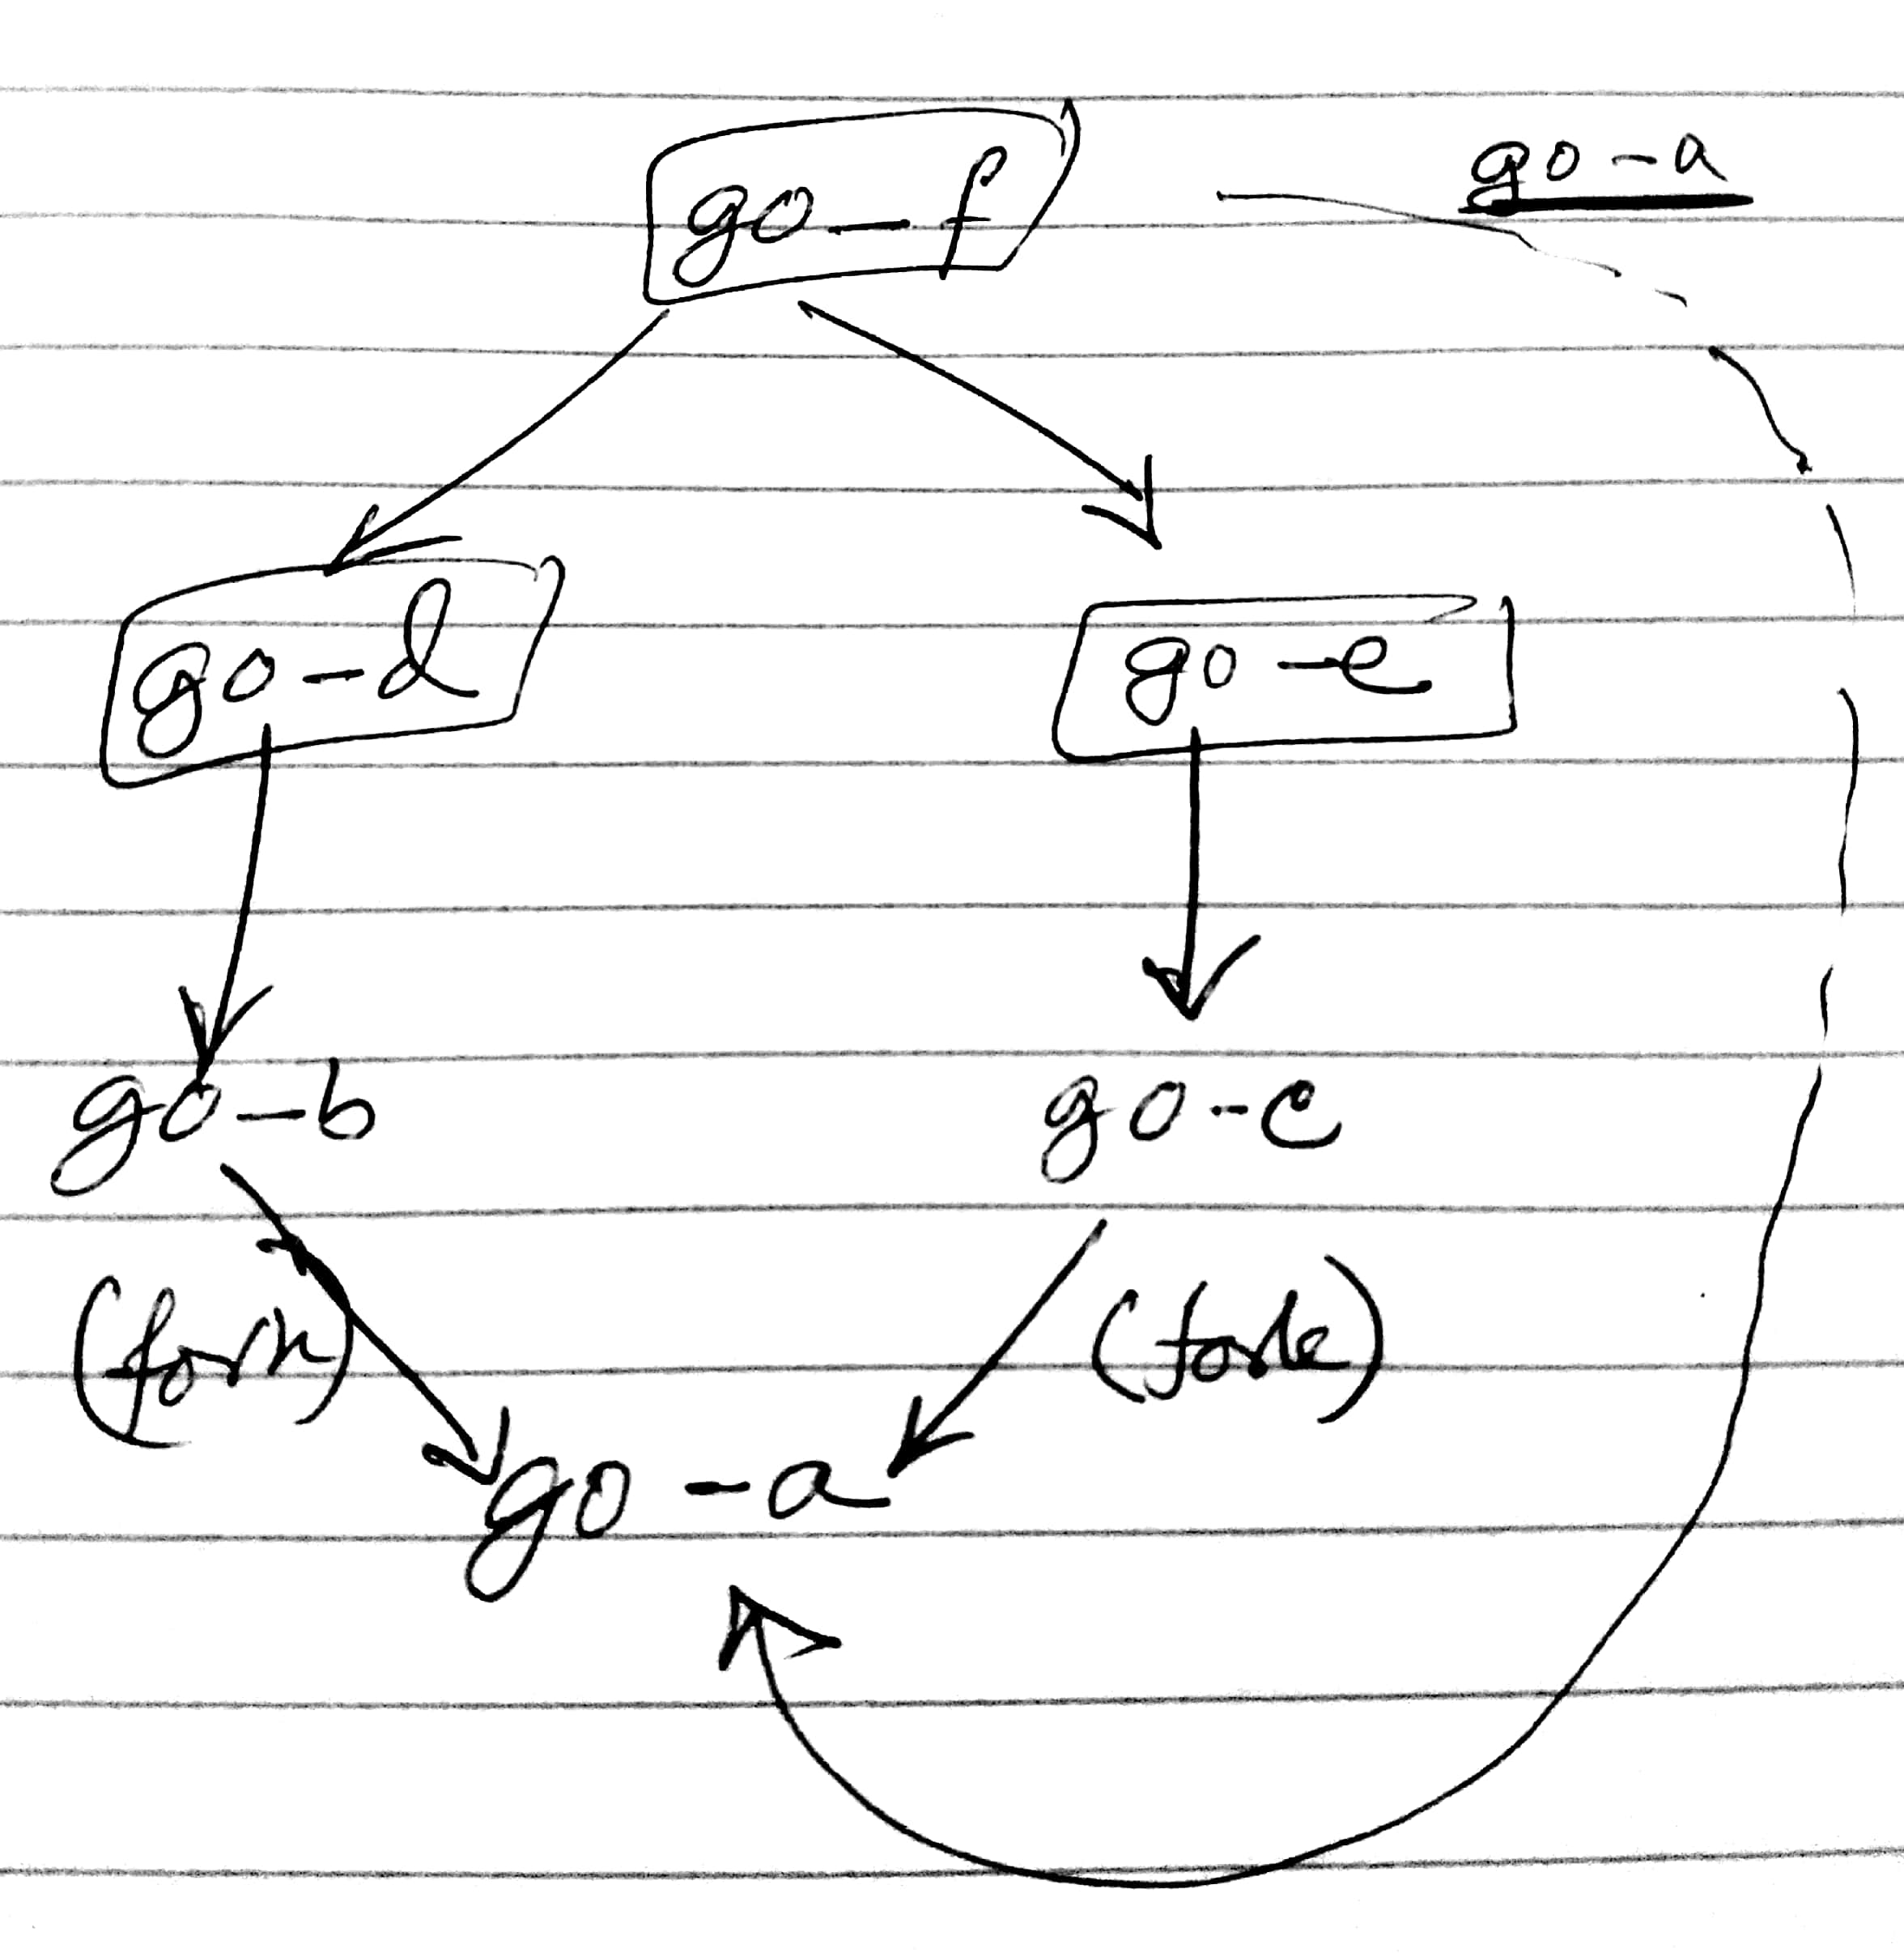 go-f
go-a
go-d
go-e
go-b
go-c
(fork)
(fork)
go-a